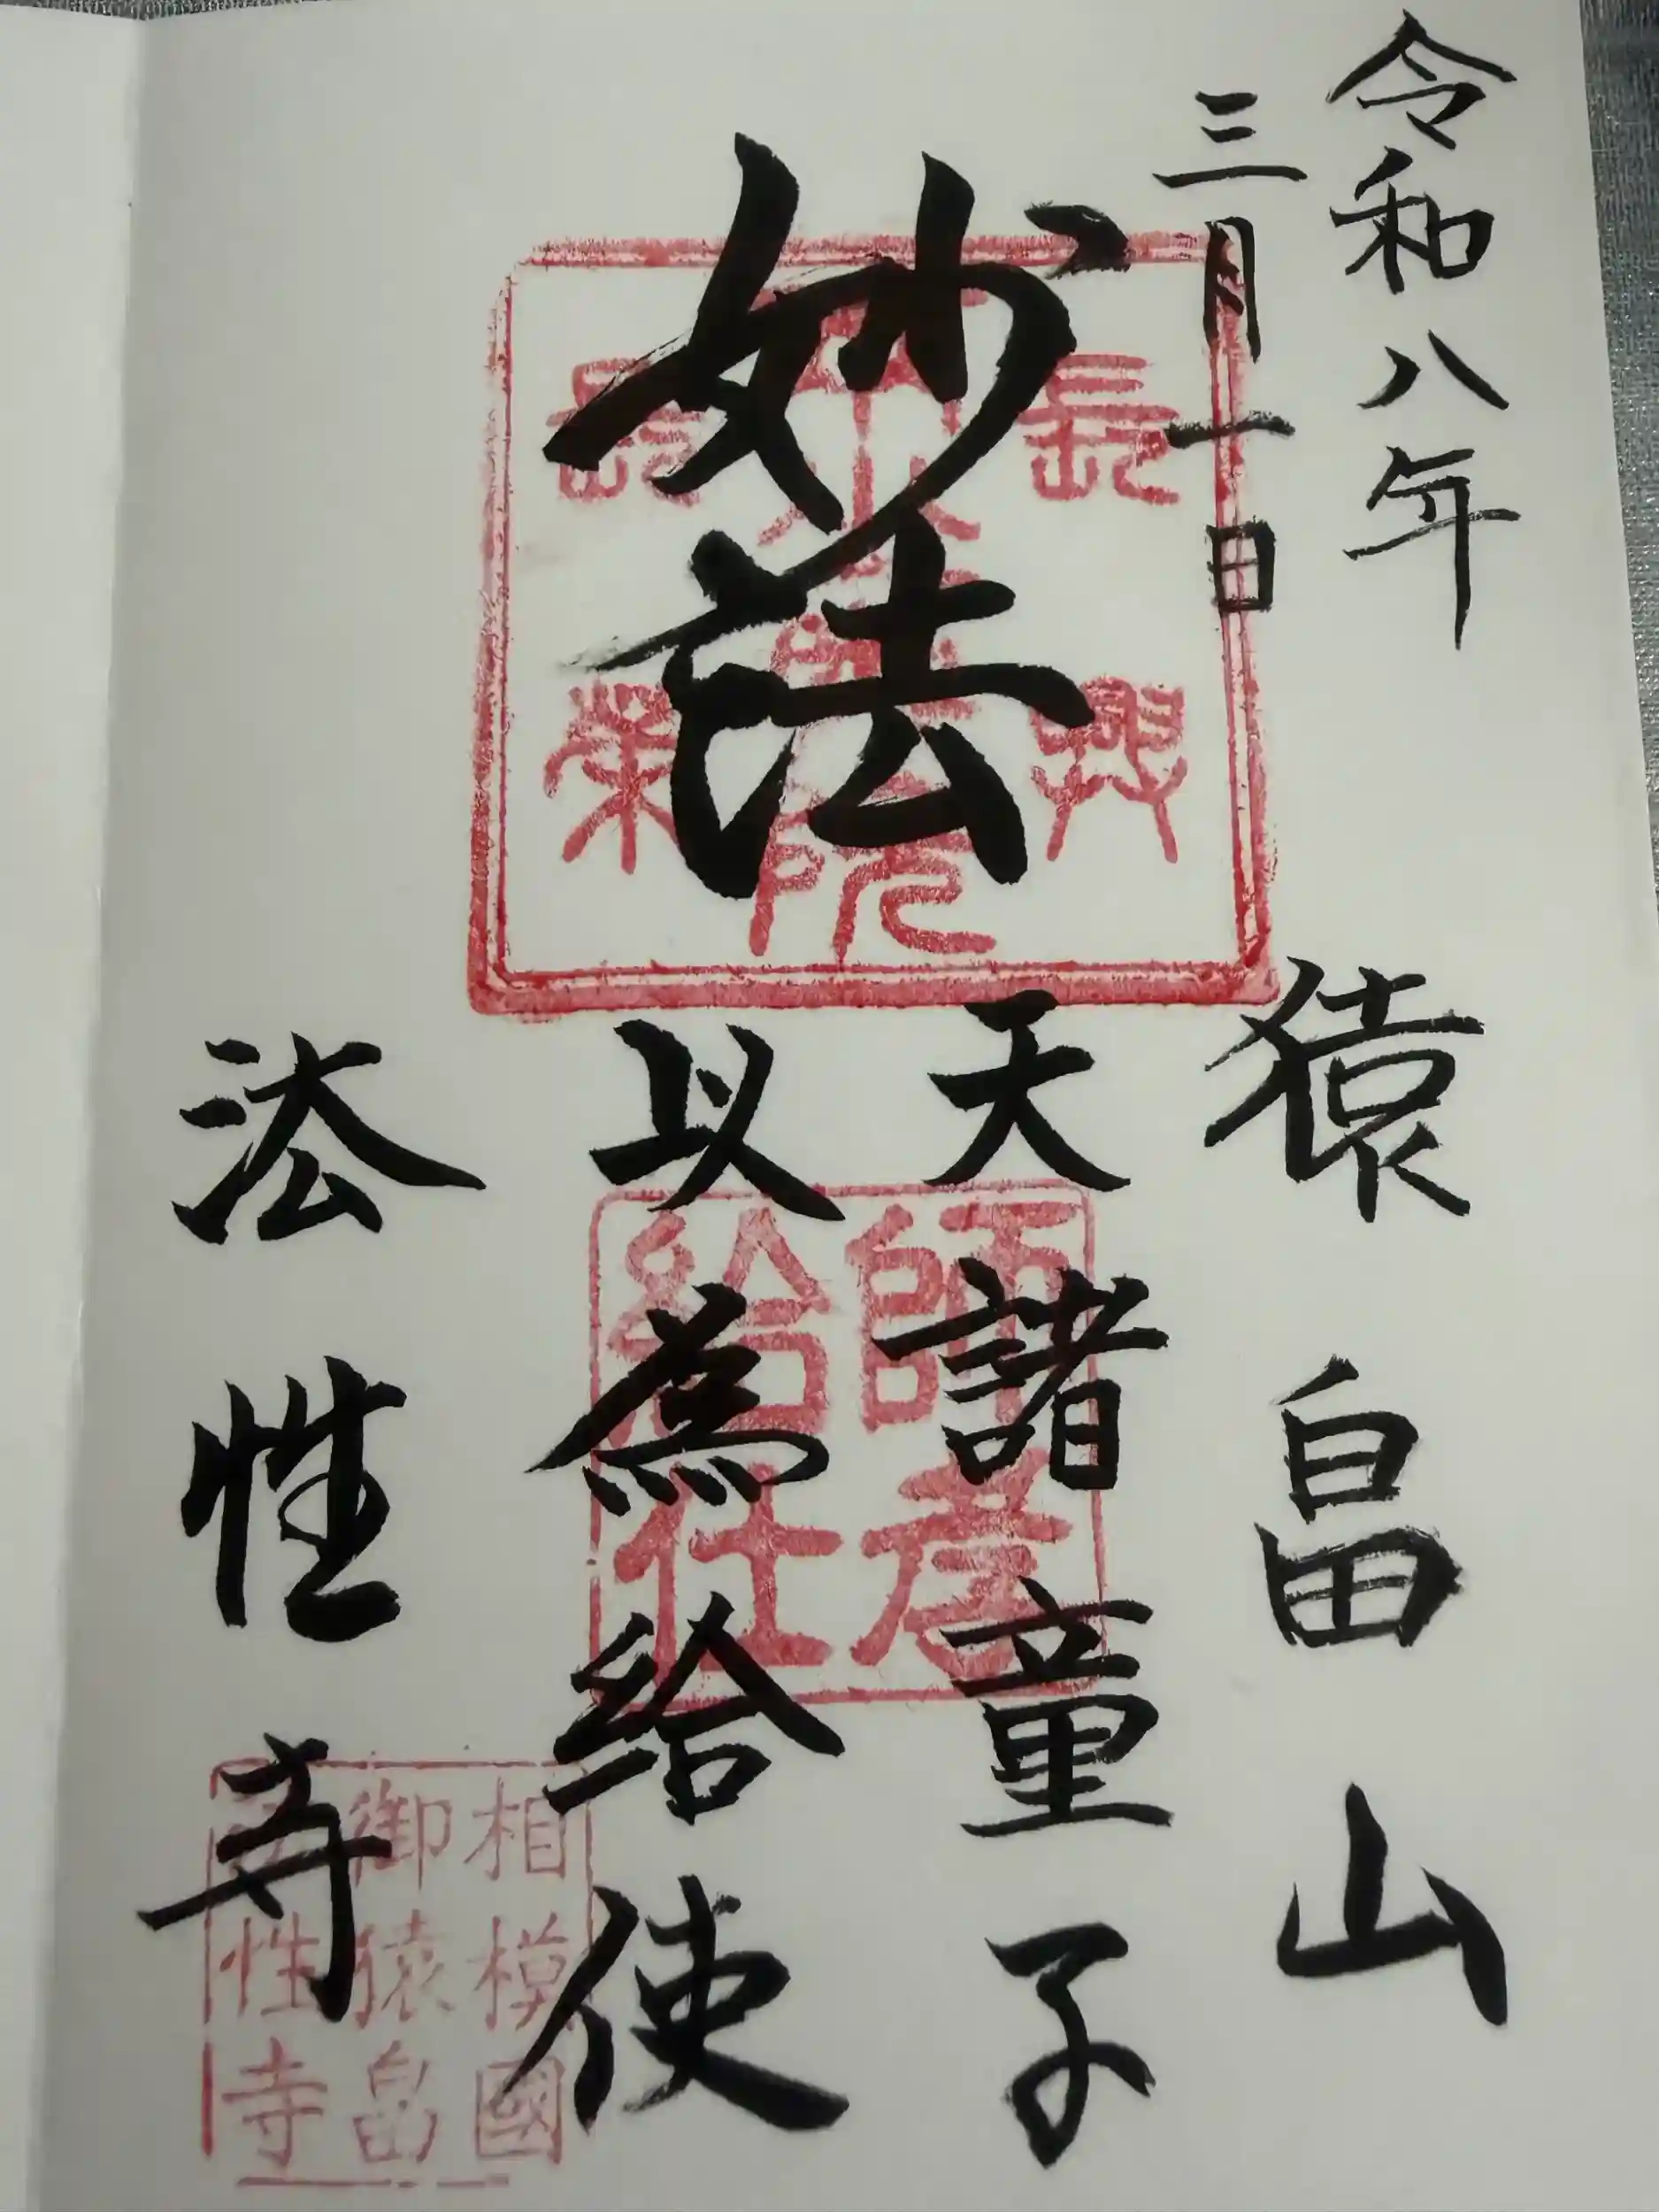 令和八年
三月一日
妙法
猿畠山
天諸童子
以為給使
法性寺
長
興
長
榮
師孝
給仕
相模國
御猿畠
法性寺